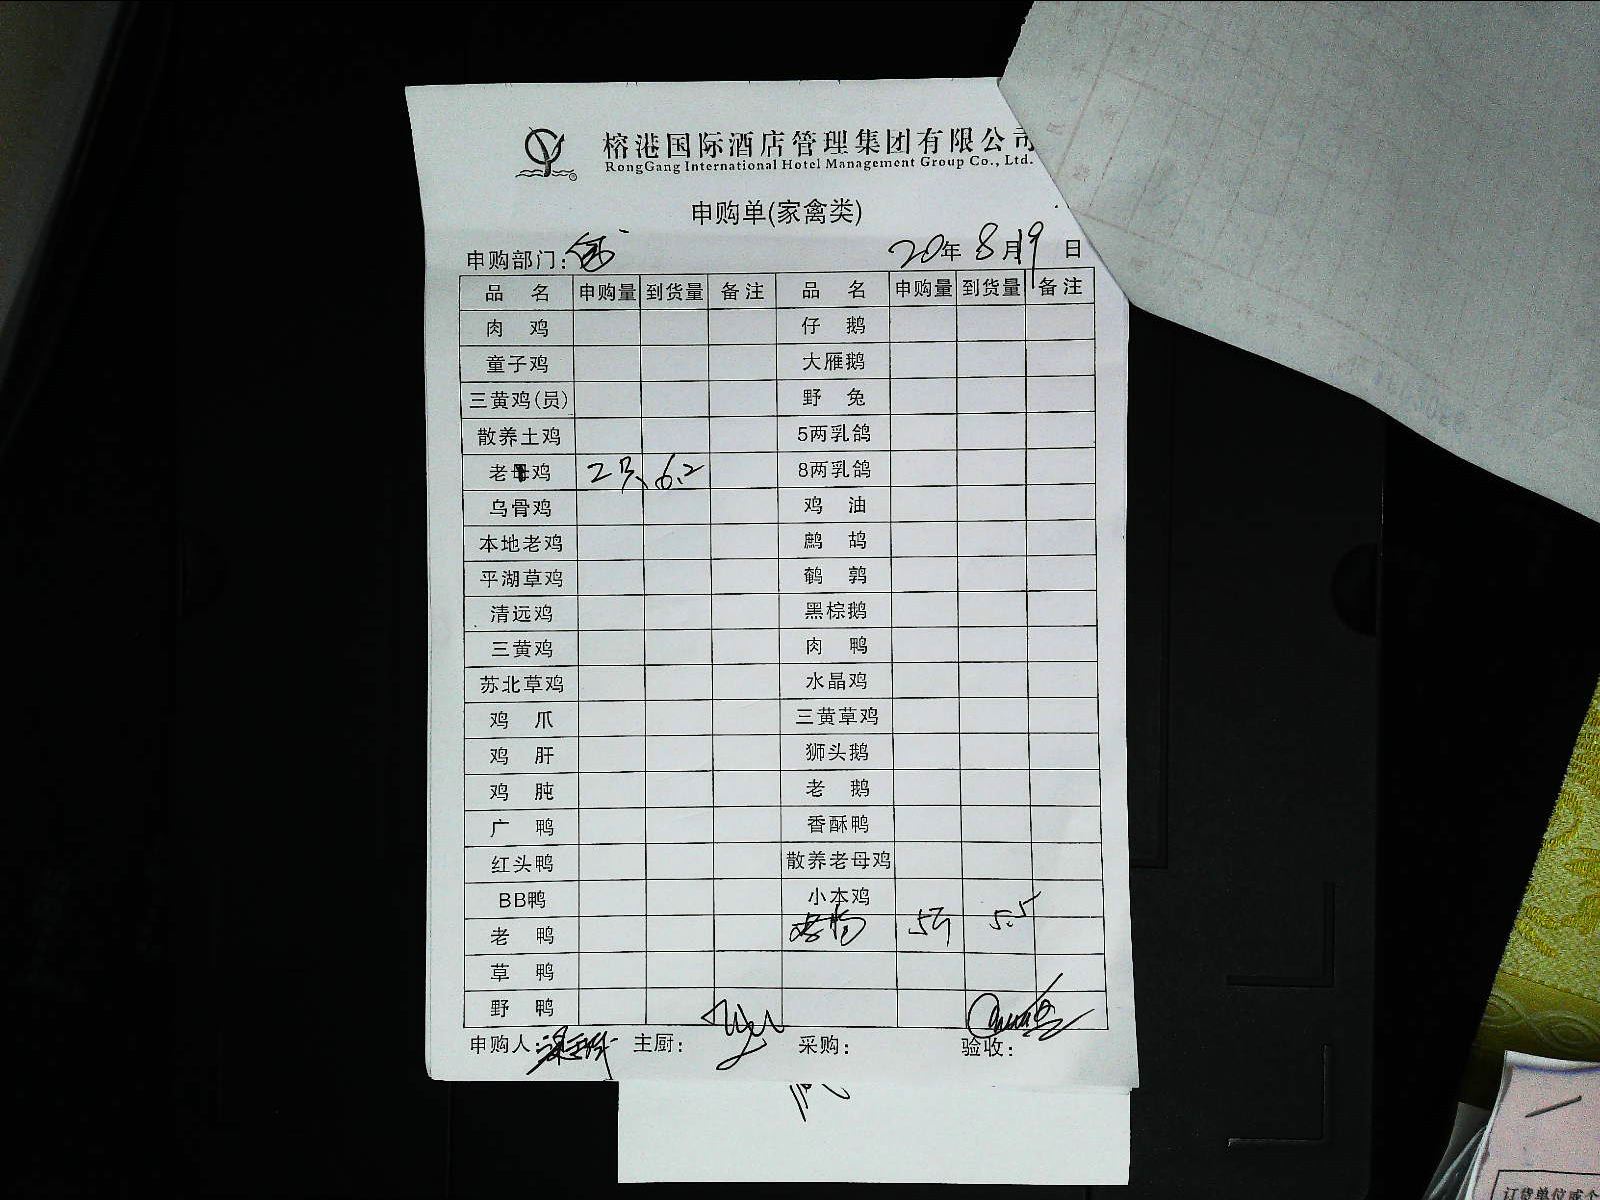 榕港国际酒店管理集团有限公司
RongGang International Hotel Management Group Co., Ltd.
®
申购单(家禽类)
申购部门: 20年8月19日
品 名 申购量 到货量 备注 品 名 申购量 到货量 备注
肉 鸡 仔 鹅
童子鸡 大雁鹅
三黄鸡(员) 野 兔
散养土鸡 5两乳鸽
老母鸡 2只 6.2 8两乳鸽
乌骨鸡 鸡 油
本地老鸡 鹧 鸪
平湖草鸡 鹌 鹑
清远鸡 黑棕鹅
三黄鸡 肉 鸭
苏北草鸡 水晶鸡
鸡 爪 三黄草鸡
鸡 肝 狮头鹅
鸡 肫 老 鹅
广 鸭 香酥鸭
红头鸭 散养老母鸡
BB鸭 小本鸡
老 鸭 5斤 5.5
草 鸭
野 鸭
申购人: 主厨: 采购: 验收:
订货单位或个